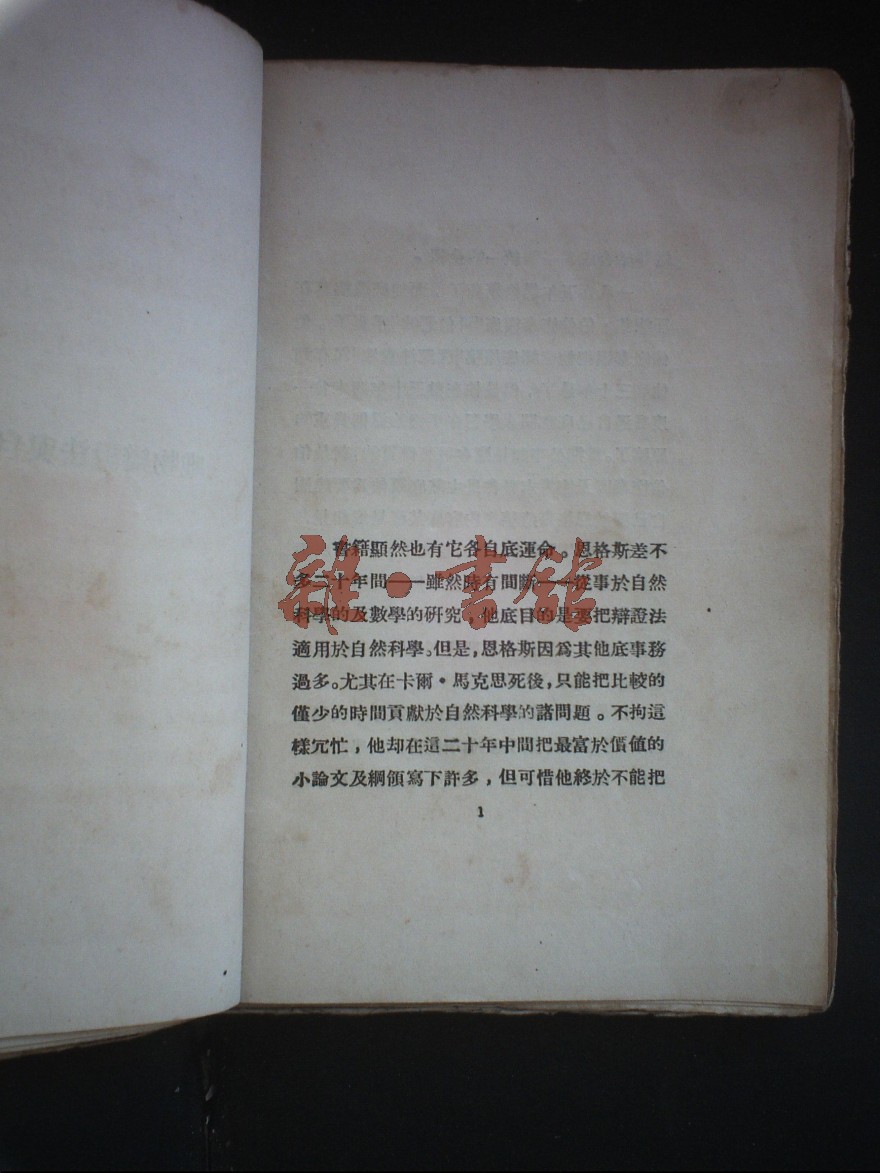 書籍顯然也有它各自底運命。恩格斯差不
多二十年間——雖然時有間斷——從事於自然
科學的及數學的研究，他底目的是要把辯證法
適用於自然科學。但是，恩格斯因爲其他底事務
過多。尤其在卡爾・馬克思死後，只能把比較的
僅少的時間貢獻於自然科學的諸問題。不拘這
樣冗忙，他却在這二十年中間把最富於價値的
小論文及綱領寫下許多，但可惜他終於不能把
1
雜・書館